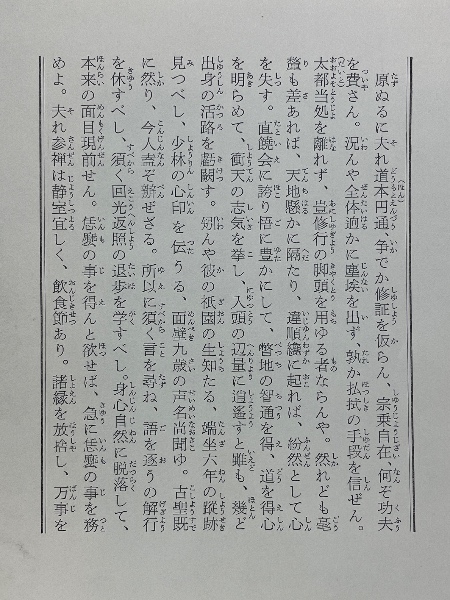 原ぬるに夫れ道本円通、争でか修証を仮らん、宗乗自在、何ぞ功夫
を費さん。況んや全体逈かに塵埃を出ず、孰か払拭の手段を信ぜん。
大都当処を離れず、豈修行の脚頭を用ゆる者ならんや。然れども毫
釐も差あれば、天地懸かに隔たり、違順纔に起れば、紛然として心
を失す。直饒会に誇り悟に豊かにして、瞥地の智通を得、道を得心
を明らめて、衝天の志気を挙し、入頭の辺量に逍遥すと雖も、幾ど
出身の活路を虧闕す。矧んや彼の祇園の生知たる、端坐六年の蹤跡
見つべし、少林の心印を伝うる、面壁九歳の声名尚聞ゆ。古聖既
に然り、今人盍ぞ辦ぜざる。所以に須く言を尋ね、語を逐うの解行
を休すべし、須く回光返照の退歩を学すべし。身心自然に脱落して、
本来の面目現前せん。恁麼の事を得んと欲せば、急に恁麼の事を務
めよ。夫れ参禅は静室宜しく、飲食節あり。諸縁を放捨し、万事を